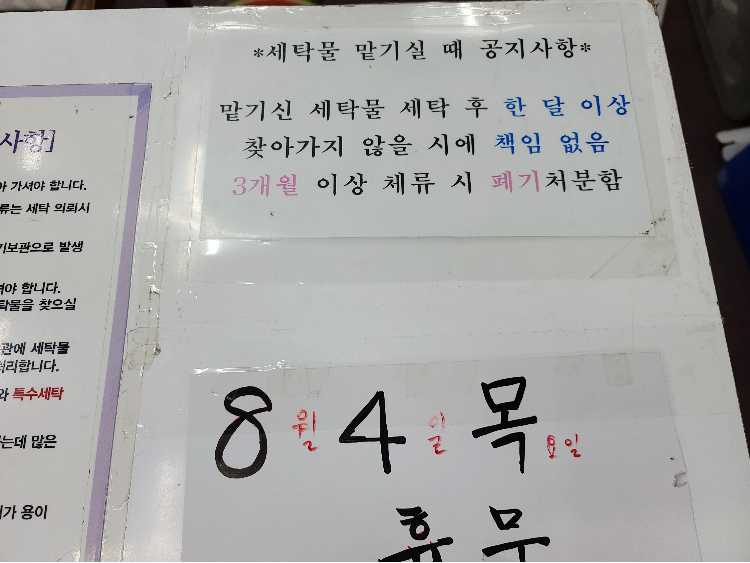 *세탁물 맡기실 때 공지사항*
맡기신 세탁물 세탁 후 한 달 이상
찾아가지 않을 시에 책임 없음
3개월 이상 체류 시 폐기처분함
사항]
가셔야 합니다.
류는 세탁 의뢰시
기보관으로 발생
야 합니다.
탁물을 찾으실
관에 세탁물
처리합니다.
와 특수세탁
는데 많은
가 용이
8월 4일 목요일
휴무